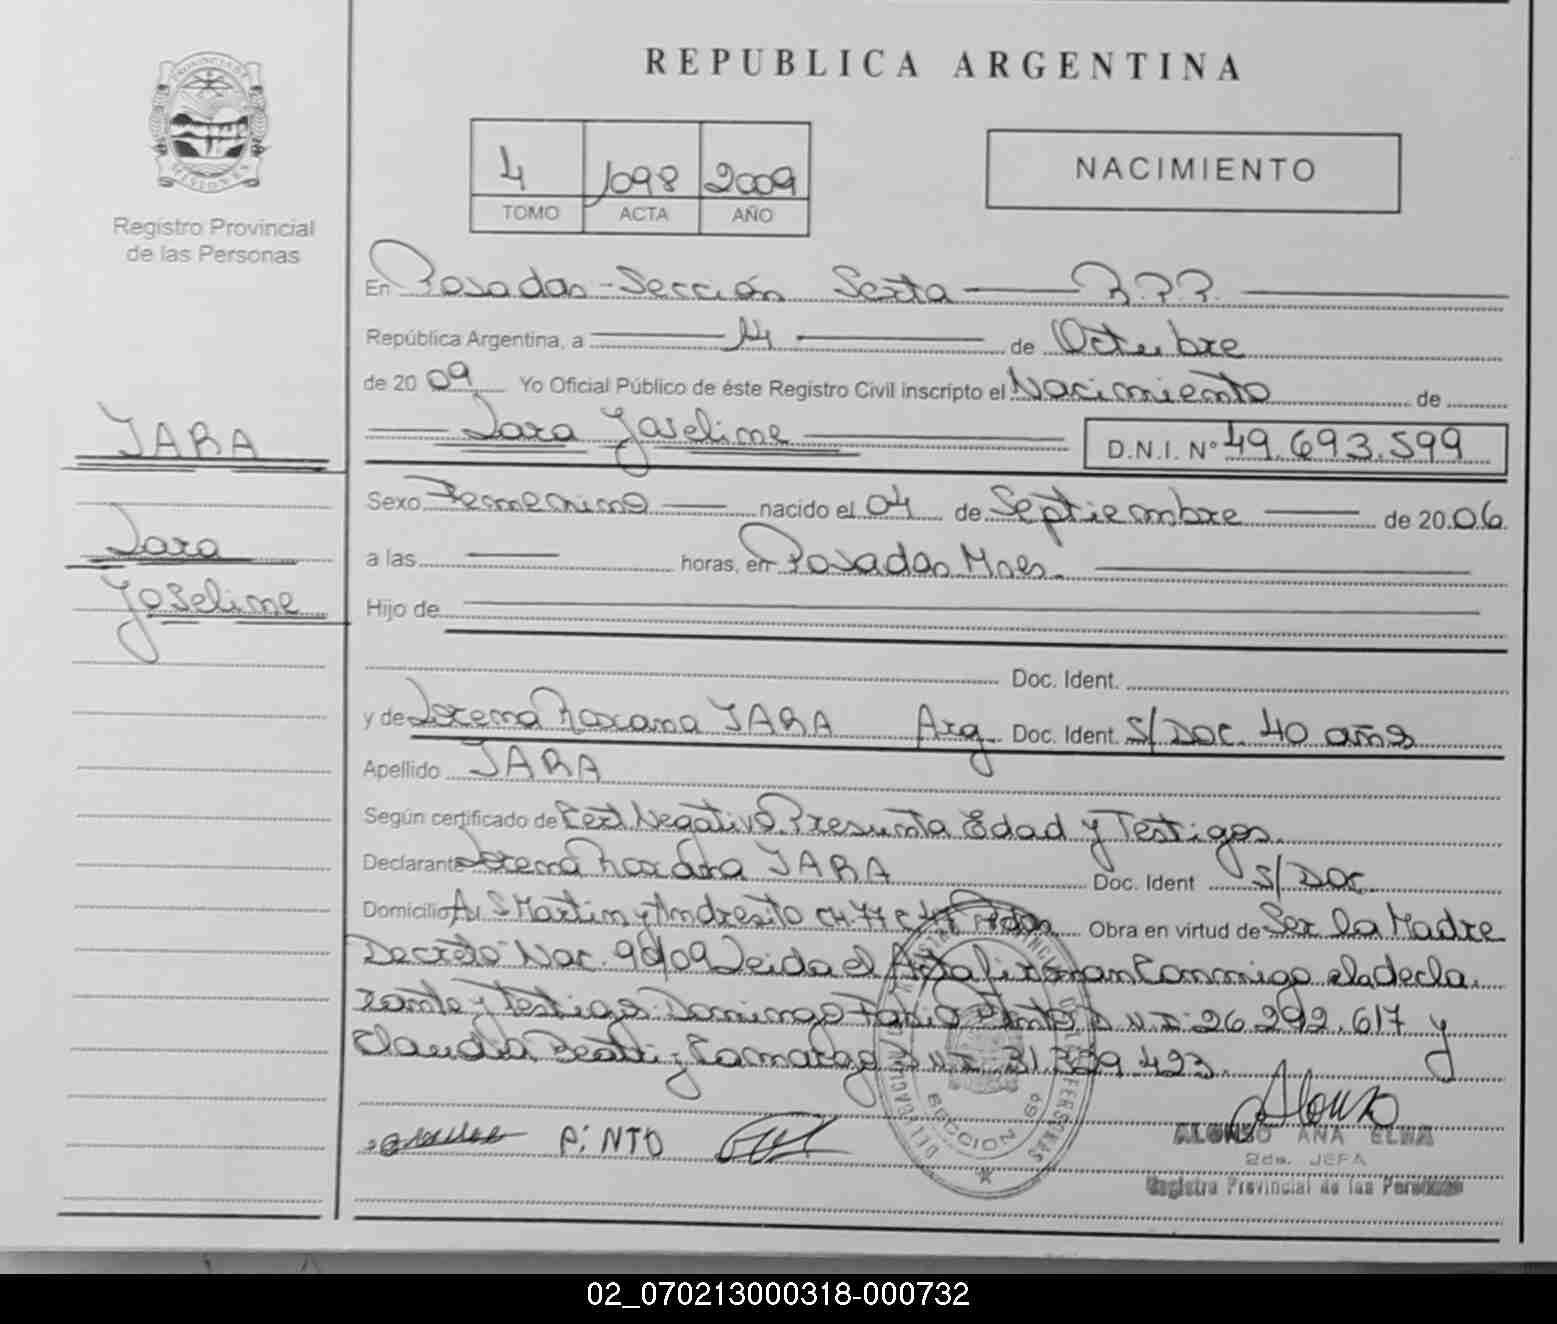 REPUBLICA ARGENTINA
PROVINCIA DE
MISIONES
Registro Provincial
de las Personas
4 1098 2009
TOMO ACTA AÑO
NACIMIENTO
En Posadas - Sección Sexta
República Argentina, a 14 de Octubre
de 2009 Yo Oficial Público de éste Registro Civil inscripto el Nacimiento de
Joseline D.N.I. Nº 49.693.599
JARA
Joseline
Sexo Femenino nacido el 04 de Septiembre de 2006
a las horas, en Posadas Mnes.
Hijo de
Doc. Ident.
y de Lorena Roxana JARA Arg. Doc. Ident. S/DOC. 40 años
Apellido JARA
Según certificado de Cert Negativo. Presunta Edad y Testigos.
Declarante Lorena Roxana JARA Doc. Ident S/DOC
Domicilio Av S Martin y Andresito CH 77 Obra en virtud de Ser la Madre
Decreto Nac. 90/09 Leida el Acta firman Conmigo la decla
rante y Testigos: Domingo Fabio Pinto D.N.I. 26.292.617 y
Claudia Beatriz Camargo D.N.I. 31.329.423.
PiNTO
SECCION 6º
Alonso
ALONSO ANA ELBA
2da. JEFA
Registro Provincial de las Personas
02_070213000318-000732